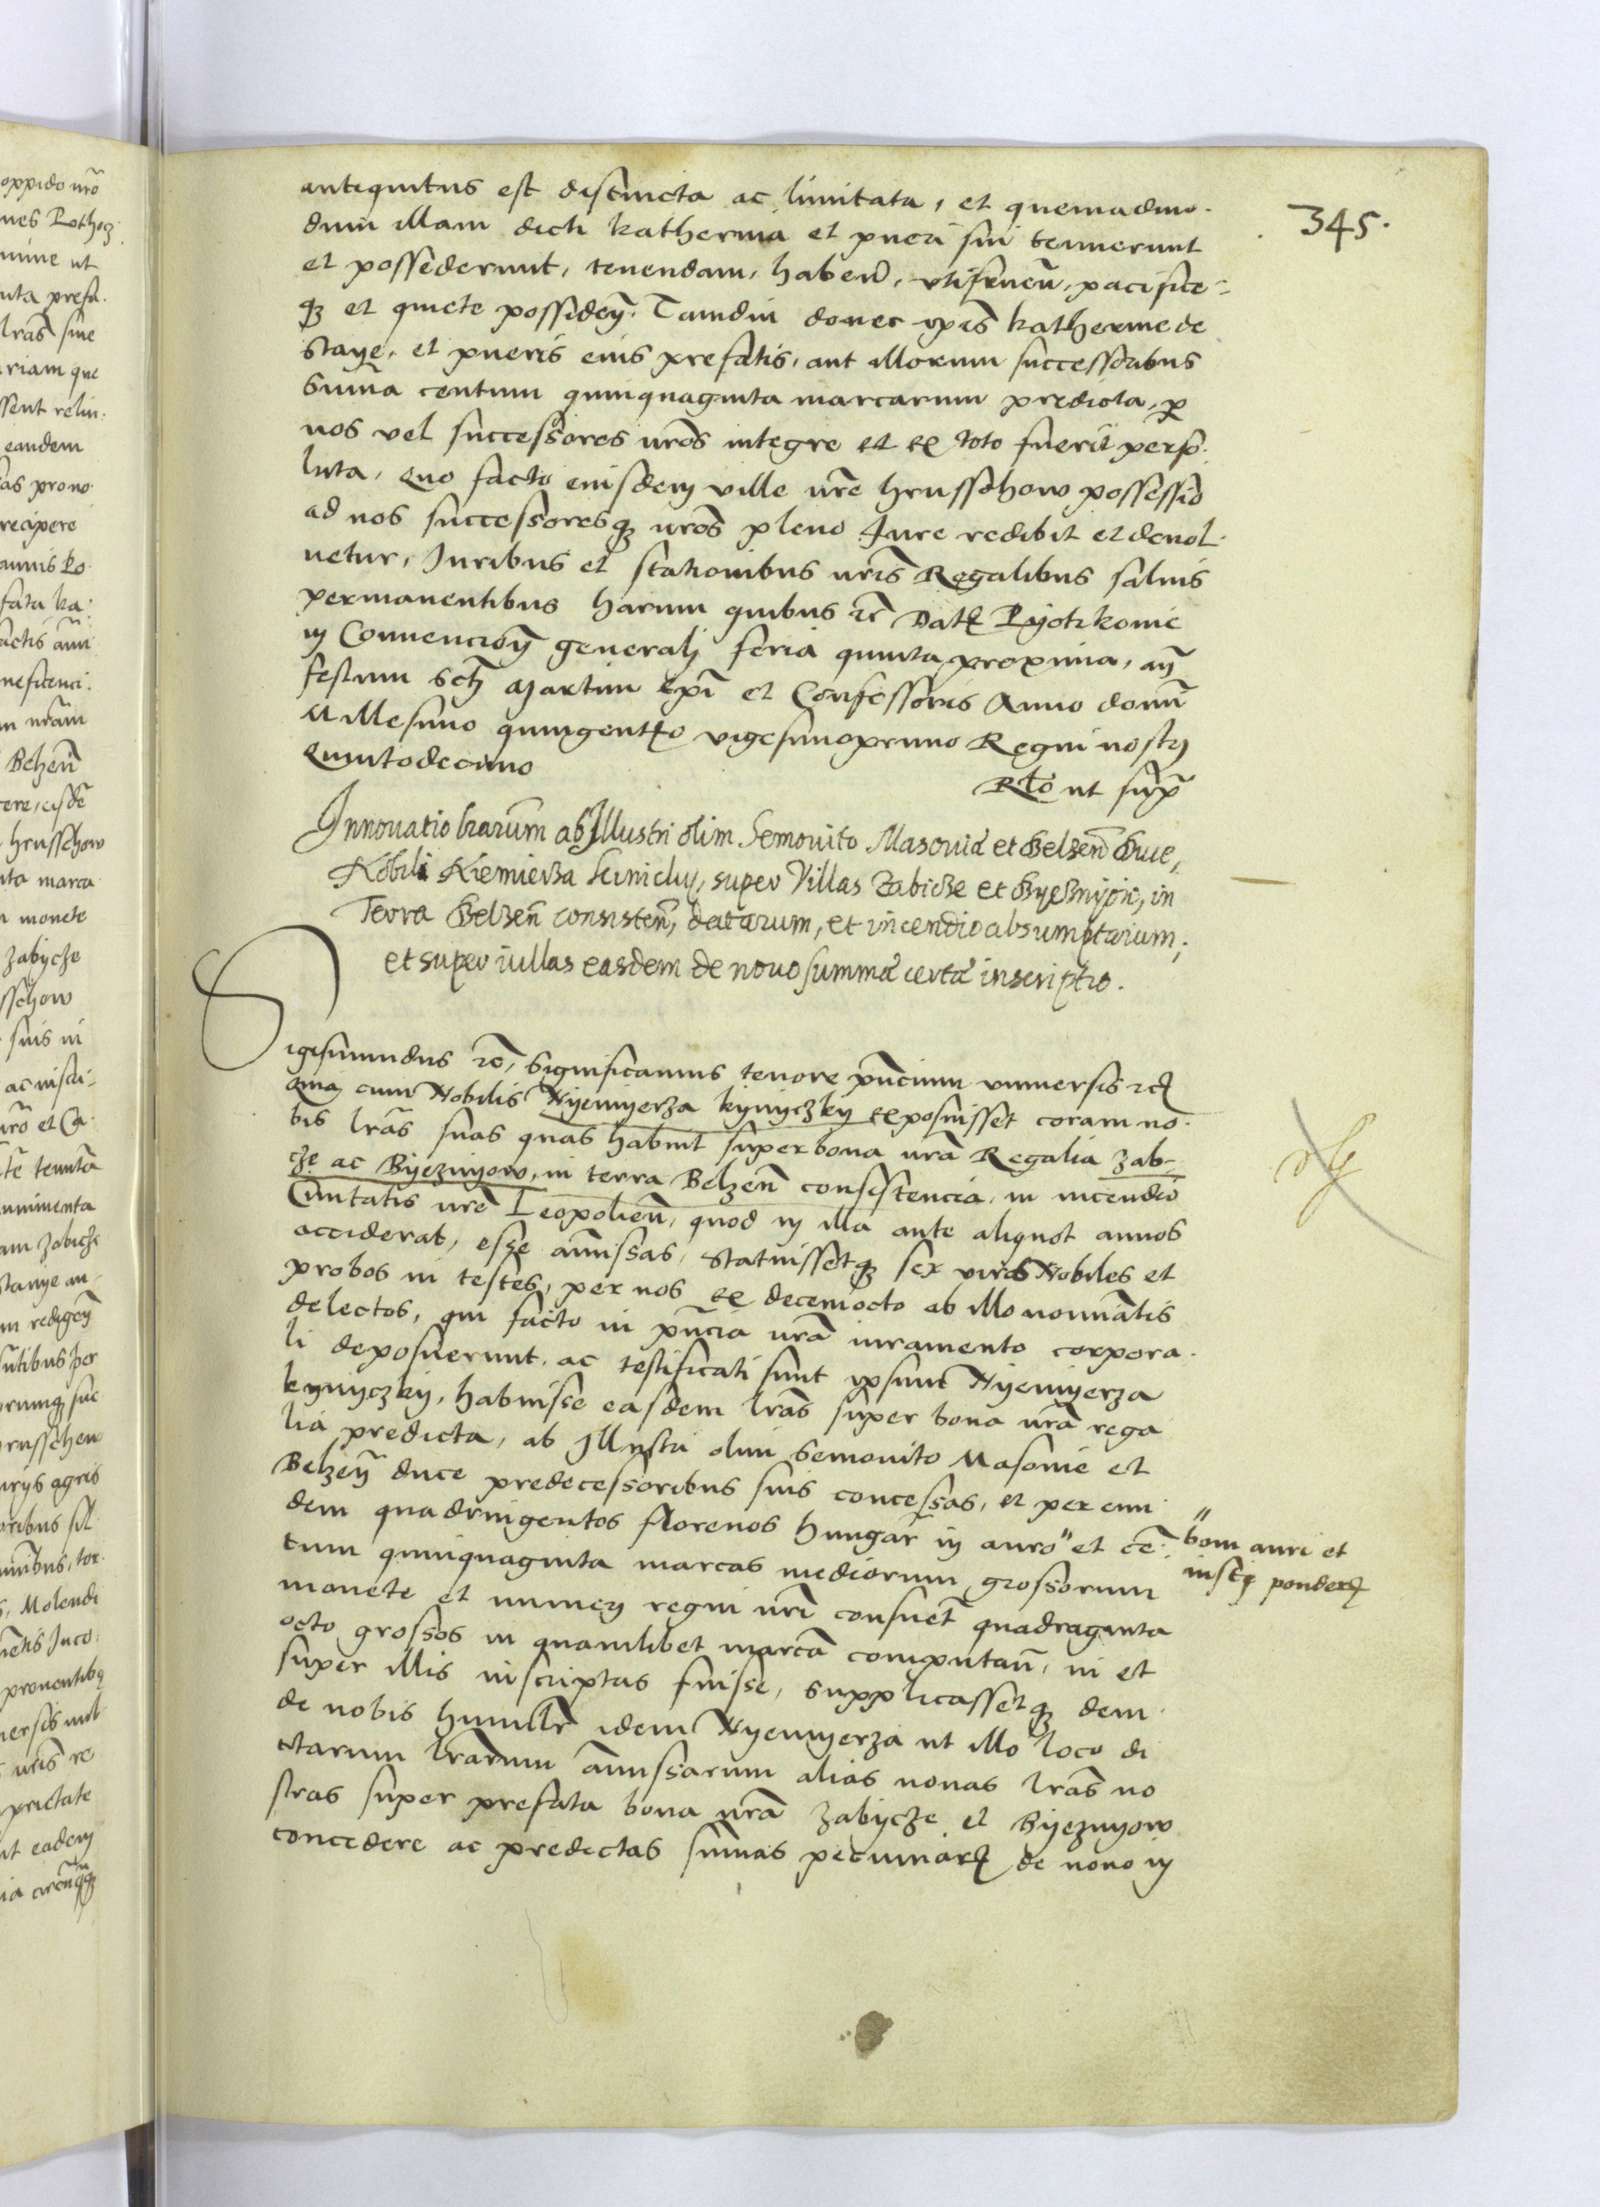 345.
antiquitus est distincta ac limitata, et quemadmo-
dum illam dicti Katherina et pueri sui tenuerunt
et possederunt, tenendam, habeñ, utifrueñ, pacifice-
qȝ et quiete possideñ. Tamdiu donec ipsis Katherine de
Staye, et pueris eius prefatis, aut illorum successoribus
Sum̃a centum quinquaginta marcarum predicta, per
nos vel successores nros̃ integre et ex toto fuerit perso-
luta, Quo facto eiusdem ville nrẽ Hrusschow possessio
ad nos successoresqȝ nros̃ pleno Jure redibit et devol-
vetur, Juribus et stationibus nris̃ Regalibus salvis
permanentibus harum quibus etc̃ Datȩ Pyotrkovie
in Convencioñ generali feria quinta proxima, añ
festum Scti Martini Epĩ et Confessoris Anno domĩ
Millesimo quingentȩo vigesimoprimo Regni nostri
Quintodecimo
Rtõ ut supȓ
Innovatio lrarum̃ ab Illustri olim Semovito Masovie et Belzeñ Duce,
Nobili Niemierza Kiniclii, super Villas Zabicze et Byeznyow, in
Terra Belzeñ consisteñ, datarum, et incendio absumptarum,
et super villas easdem de novo summæ certæ inscriptio.
Sigismundus etc̃, Significamus tenore pñcium universis etcȩ
Quia cum Nobilis Nyemyerza Kynyczky exposuisset coram no-
bis lrãs suas quas habuit super bona nrã Regalia Zab-
cze ac Byeznyow, in terra Belzeñ consistencia, in incendio
Civitatis nrẽ Leopolieñ, quod in illa ante aliquot annos
acciderat, esse am̃issas, Statuissetqȝ sex viros Nobiles et
probos in testes, per nos ex decemocto ab illo nominãtis
delectos, qui facto in pñcia nrã iuramento corpora-
li deposuerunt, ac testificati sunt ipsum Nyemyerza
Kynyczky, habuisse easdem lrãs super bona nrã rega
lia predicta, ab Illustri olim Semovito Masovie et
Belzeñ duce predecessoribus suis concessas, et per eun-
dem quadringentos florenos Hungar̃ in auro " et cẽ-
tum quinquaginta marcas mediorum grossorum
monete et numeri regni nrĩ consuet̃ quadraginta
octo grossos in quamlibet marcã computañ, in et
super illis inscriptas fuisse, Supplicassetqȝ dein-
de nobis humilr̃ idem Nyemyerza ut illo loco di
ctarum lrarum̃ am̃issarum alias novas lrãs no
stras super prefata bona nrã Zabycze et Byeznyow
concedere ac predictas sum̃as pecuniarȩ de novo in
" boni auri et
iusti ponderȩ